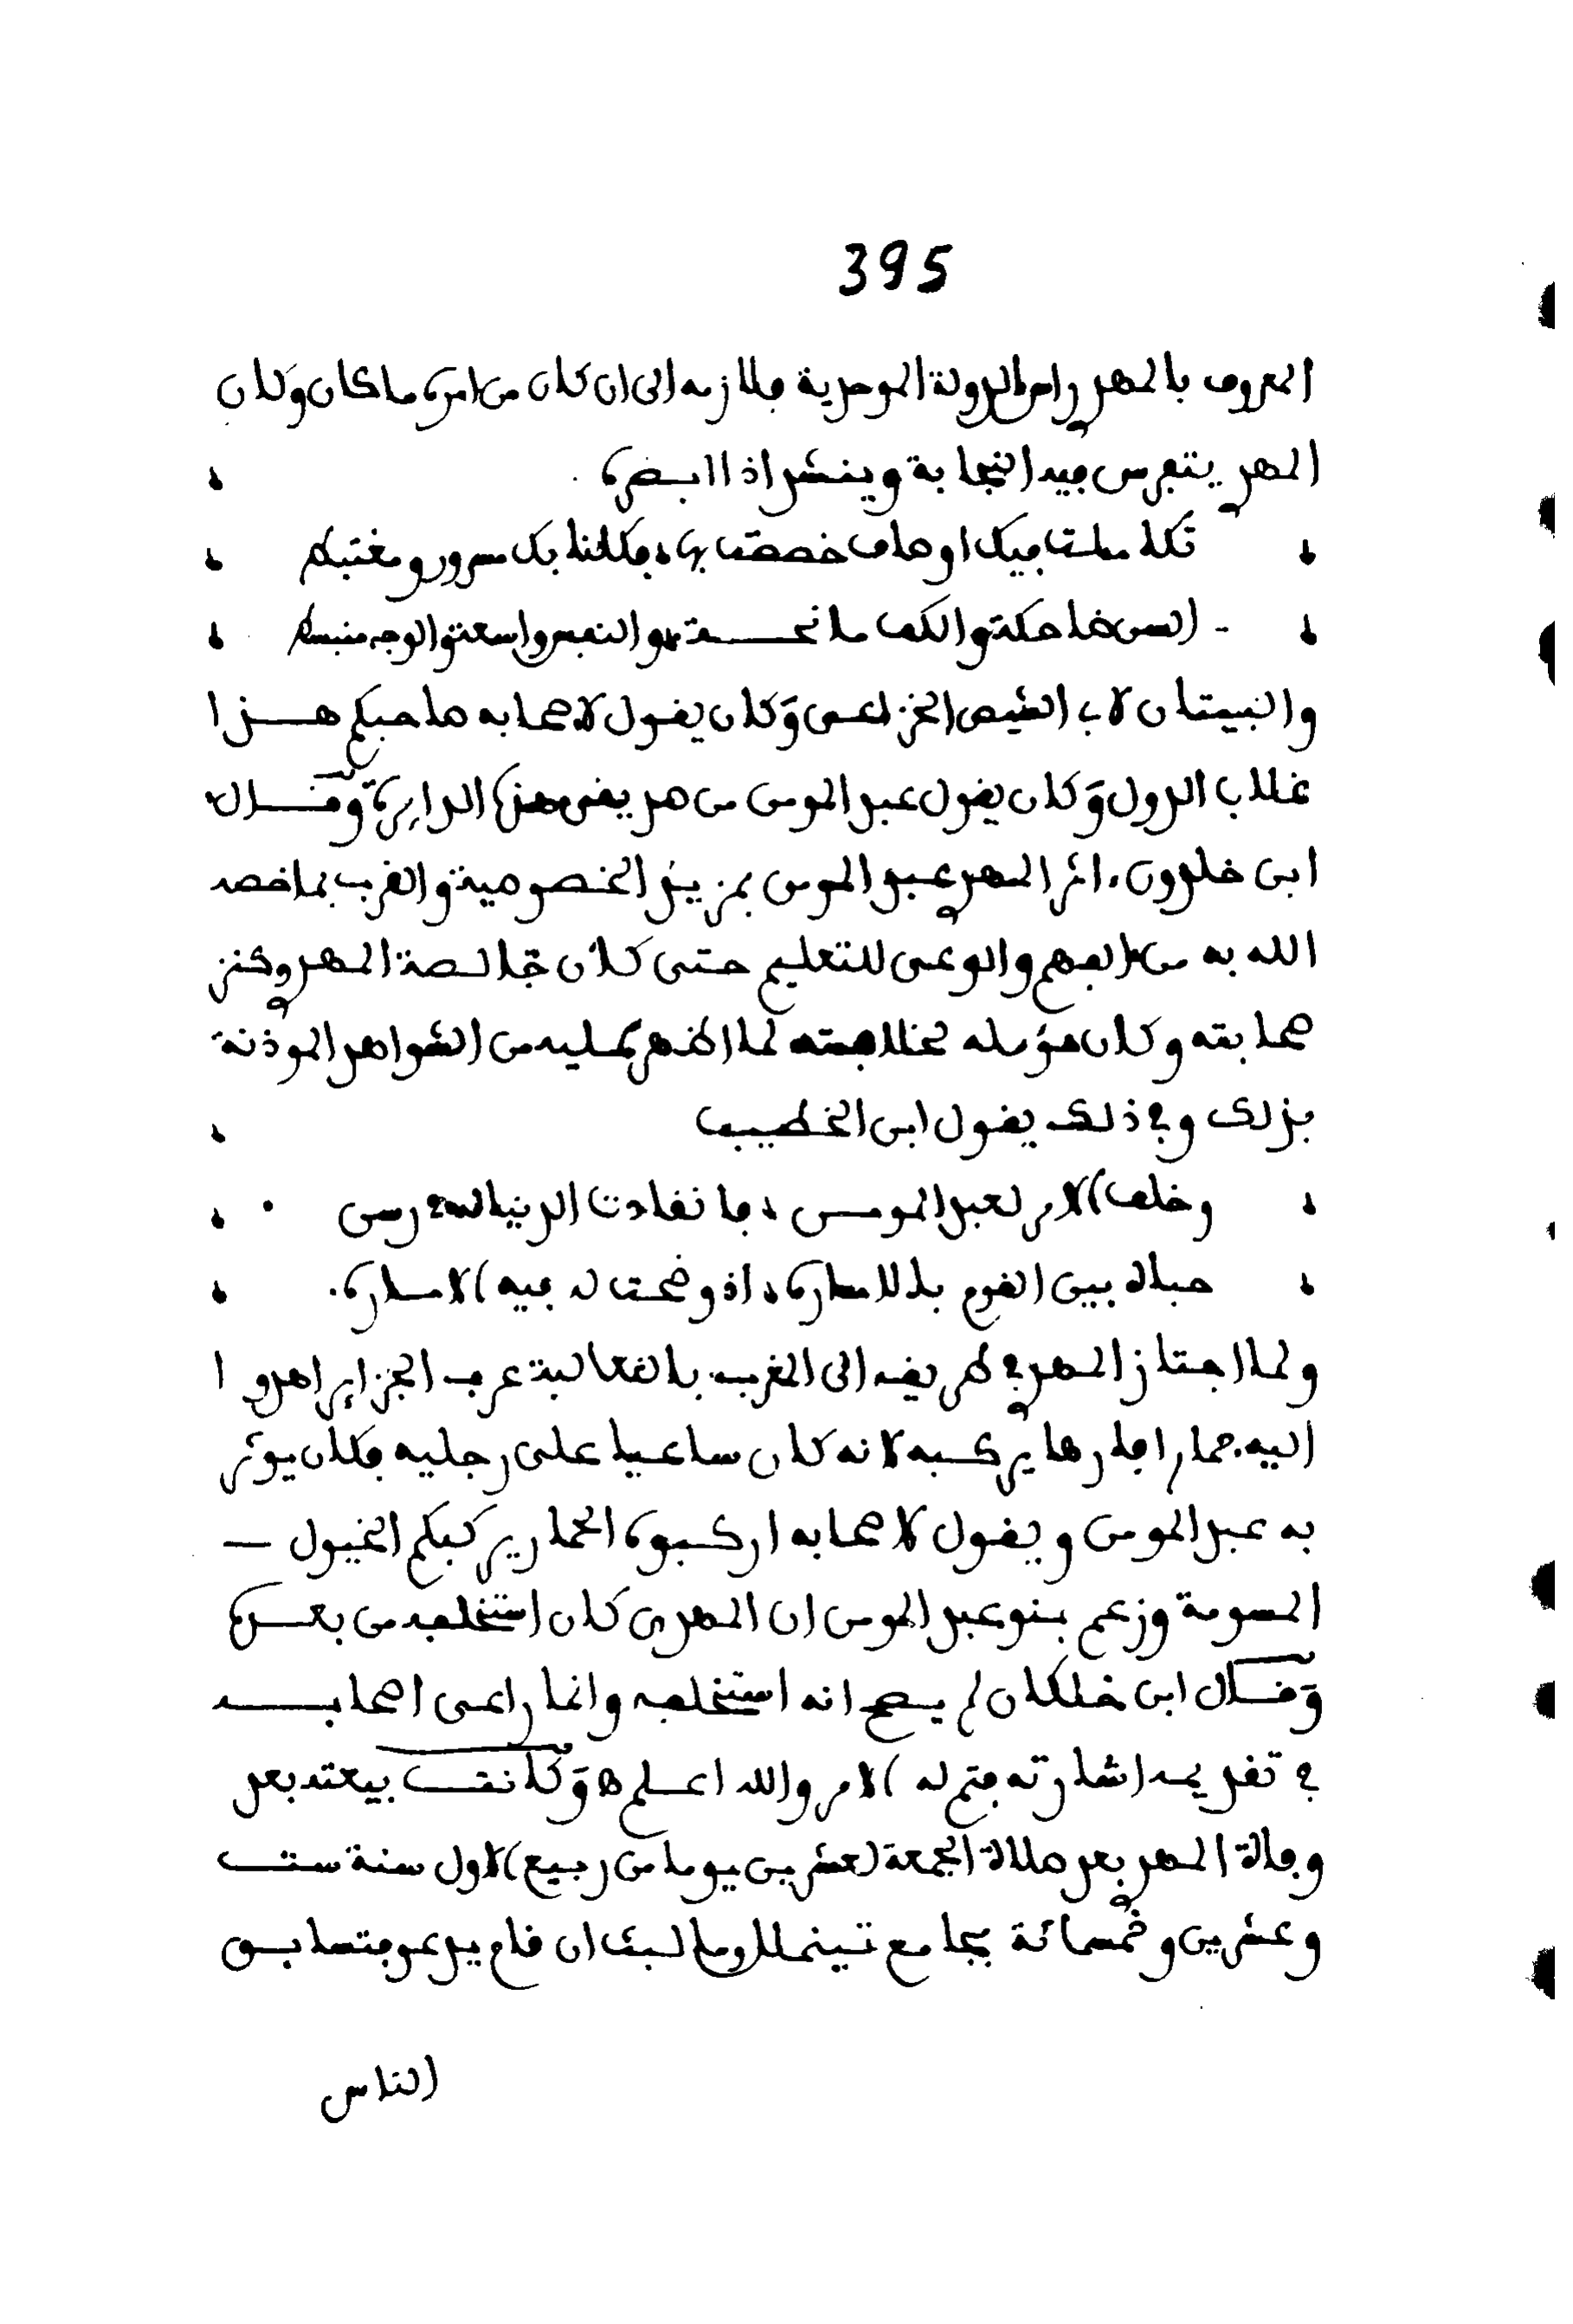 395
المعروف بالمهدي راس الدولة الموحدية فلازمه الى ان كان من امره ما كان وكان
المهدي يتفرس فيه النجابة وينشد اذا ابصره
تكاملت فيك اوصاف خصصت بها فكلنا بك مسرور ومغتبط
السن ضاحكة والكف مانحة والنفس واسعة والوجه منبسط
والبيتان لابي الشيص الخزاعي وكان يقول لاصحابه صاحبكم هذا
غلاب الدول وكان يقول عبد المومن من صديقي هذه الدايرة وقال
ابن خلدون اثر المهدي عبد المومن بمزيد الخصوصية والقرب بما خصه
الله به من الفهم والوعي للتعليم حتى كان خالصة المهدي وكنز
صحابته وكان يؤمله لخلافته لما اظهر عليه من الشواهد الموذنة
بذلك وفي ذلك يقول ابن الخطيب
وخلف الامر لعبد المومن فانقادت الدنيا له في رسن
حباه بين القوم بالاماره اذ وضحت له فيه الاماره
ولما اجتاز المهدي في طريقه الى المغرب بالثعالبة عرب الجزاير اهدوا
اليه حمارا فارها يركبه لانه كان ساعيا على رجليه فكان يوثر
به عبد المومن ويقول لاصحابه اركبوه الحمار يركبكم الخيول
المسومة وزعم بنو عبد المومن ان المهدي كان استخلفه من بعده
وقال ابن خلكان لم يصح انه استخلفه وانما راعى اصحابه
في تقديمه اشارته فتم له الامر والله اعلم ه وكانت بيعته بعد
وفاة المهدي بعد صلاة الجمعة لعشرين يوما من ربيع الاول سنة ست
وعشرين وخمسمائة بجامع تينملل وما لبث ان قام يدعو فتسابق
الناس